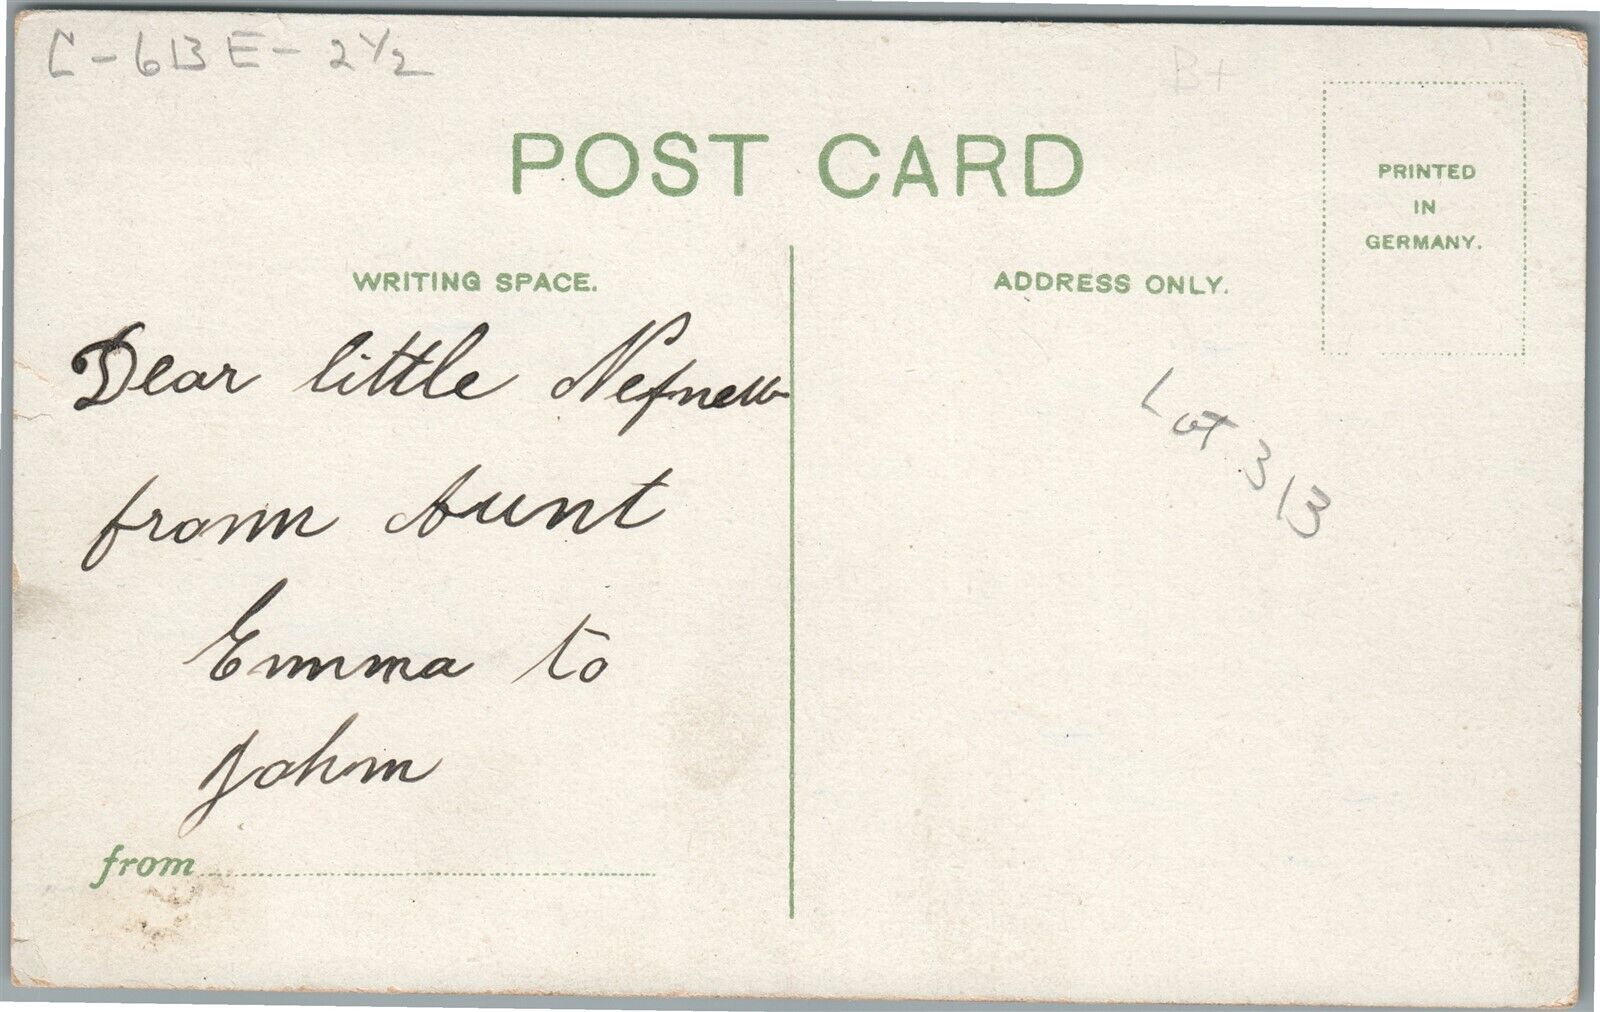 C-6BE-2½
B+
POST CARD
PRINTED
IN
GERMANY.
WRITING SPACE.
ADDRESS ONLY.
Dear little Nefnew
from Aunt
Emma to
John
from
Lot 313